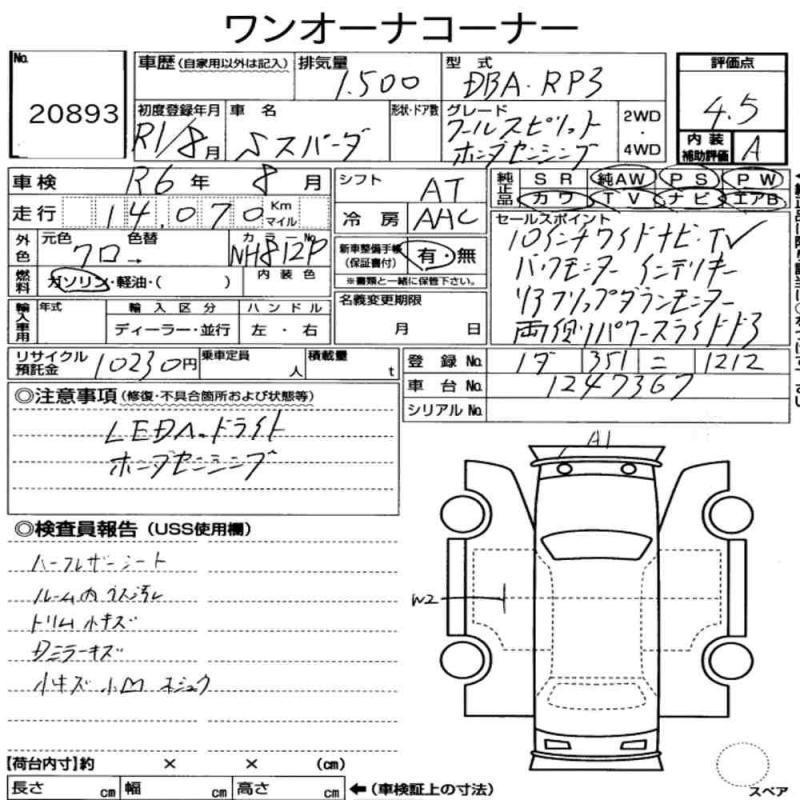 ワンオーナコーナー
No. 20893
車歴 (自家用以外は記入)
排気量 1.500
型式 DBA・RP3
評価点 4.5
初度登録年月 R1/8月
車名 スパーダ
形状・ドア数
グレード クールスピリット ホンダセンシング
2WD・4WD
内装補助評価 A
車検 R6年 8月
走行 14.070 Km マイル
シフト AT
冷房 AAC
純正品 SR 純AW PS PW
カワ TV ナビ エアB
外色 元色 クロ→ 色替 カラーNo. NH812P
燃料 ガソリン・軽油・( ) 内装色
新車整備手帳(保証書付) 有・無
※書類と一緒に保管下さい。
セールスポイント
10インチワイドナビ・TV
バックモニター インテリキー
リアフリップダウンモニター
両側パワースライドドア
輸入車用 年式 輸入区分 ハンドル
ディーラー・並行 左・右
名義変更期限
月 日
リサイクル預託金 10230円
乗車定員 人
積載量 t
登録No. 351 ニ 1212
車台No. 1247367
シリアルNo.
◎注意事項 (修復・不具合箇所および状態等)
LEDヘッドライト
ホンダセンシング
◎検査員報告 (USS使用欄)
ハーフレザーシート
ルーム内 ウス汚レ
トリム 小キズ
小キズ 小凹
A1
W2
【荷台内寸】約 × × (cm)
長さ cm 幅 cm 高さ cm ←(車検証上の寸法)
スペア